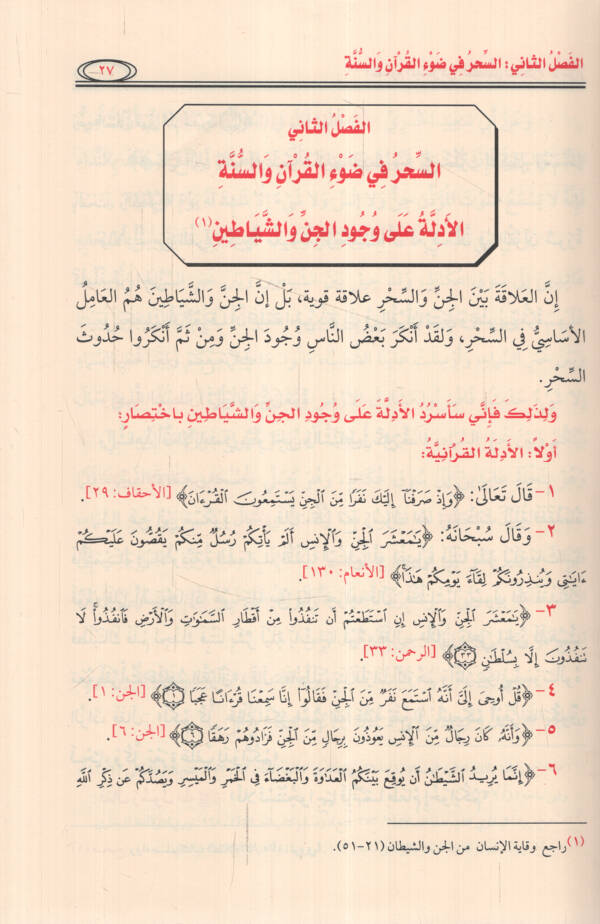 الفَصْلُ الثَّانِي: السِّحرُ فِي ضَوْءِ القُرْآنِ وَالسُّنَّةِ
٢٧
الفَصْلُ الثَّانِي
السِّحرُ فِي ضَوْءِ القُرْآنِ وَالسُّنَّةِ
الأَدِلَّةُ عَلَى وُجُودِ الجِنِّ وَالشَّيَاطِينِ(١)
إِنَّ العَلاقَةَ بَيْنَ الجِنِّ وَالسِّحْرِ علاقة قوية، بَلْ إِنَّ الجِنَّ وَالشَّيَاطِينَ هُمُ العَامِلُ
الأَسَاسِيُّ فِي السِّحْرِ، وَلَقَدْ أَنْكَرَ بَعْضُ النَّاسِ وُجُودَ الجِنِّ وَمِنْ ثَمَّ أَنْكَرُوا حُدُوثَ
السِّحْرِ.
وَلِذَلِكَ فَإِنِّي سَأَسْرُدُ الأَدِلَّةَ عَلَى وُجُودِ الجِنِّ وَالشَّيَاطِينِ بِاخْتِصَارٍ:
أَوَّلاً: الأَدِلَّةُ القُرْآنِيَّةُ:
١- قَالَ تَعَالَى: ﴿وَإِذْ صَرَفْنَآ إِلَيْكَ نَفَرًا مِّنَ ٱلْجِنِّ يَسْتَمِعُونَ ٱلْقُرْءَانَ﴾ [الأحقاف: ٢٩].
٢- وَقَالَ سُبْحَانَهُ: ﴿يَٰمَعْشَرَ ٱلْجِنِّ وَٱلْإِنسِ أَلَمْ يَأْتِكُمْ رُسُلٌ مِّنكُمْ يَقُصُّونَ عَلَيْكُمْ
ءَايَٰتِي وَيُنذِرُونَكُمْ لِقَآءَ يَوْمِكُمْ هَٰذَا﴾ [الأنعام: ١٣٠].
٣- ﴿يَٰمَعْشَرَ ٱلْجِنِّ وَٱلْإِنسِ إِنِ ٱسْتَطَعْتُمْ أَن تَنفُذُوا۟ مِنْ أَقْطَارِ ٱلسَّمَٰوَٰتِ وَٱلْأَرْضِ فَٱنفُذُوا۟ لَا
تَنفُذُونَ إِلَّا بِسُلْطَٰنٍ ٣٣﴾ [الرحمن: ٣٣].
٤- ﴿قُلْ أُوحِىَ إِلَىَّ أَنَّهُ ٱسْتَمَعَ نَفَرٌ مِّنَ ٱلْجِنِّ فَقَالُوٓا۟ إِنَّا سَمِعْنَا قُرْءَانًا عَجَبًا ١﴾ [الجن: ١].
٥- ﴿وَأَنَّهُۥ كَانَ رِجَالٌ مِّنَ ٱلْإِنسِ يَعُوذُونَ بِرِجَالٍ مِّنَ ٱلْجِنِّ فَزَادُوهُمْ رَهَقًا ٦﴾ [الجن: ٦].
٦- ﴿إِنَّمَا يُرِيدُ ٱلشَّيْطَٰنُ أَن يُوقِعَ بَيْنَكُمُ ٱلْعَدَٰوَةَ وَٱلْبَغْضَآءَ فِى ٱلْخَمْرِ وَٱلْمَيْسِرِ وَيَصُدَّكُمْ عَن ذِكْرِ ٱللَّهِ
(١) راجع وقاية الإنسان من الجن والشيطان (٢١-٥١).